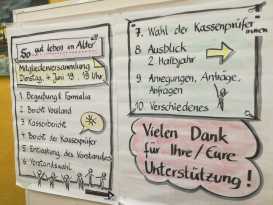 So gut leben im Alter
Mitgliederversammlung
Dienstag, 4. Juni 19 18 Uhr
1. Begrüßung & Formalia
2. Bericht Vorstand
3. Kassenbericht
4. Bericht der Kassenprüfer
5. Entlastung des Vorstandes
6. Vorstandswahl
7. Wahl der Kassenprüfer
innen
8. Ausblick
2. Halbjahr
9. Anregungen, Anträge,
Anfragen
10. Verschiedenes
Vielen Dank
für Ihre/Eure
Unterstützung!